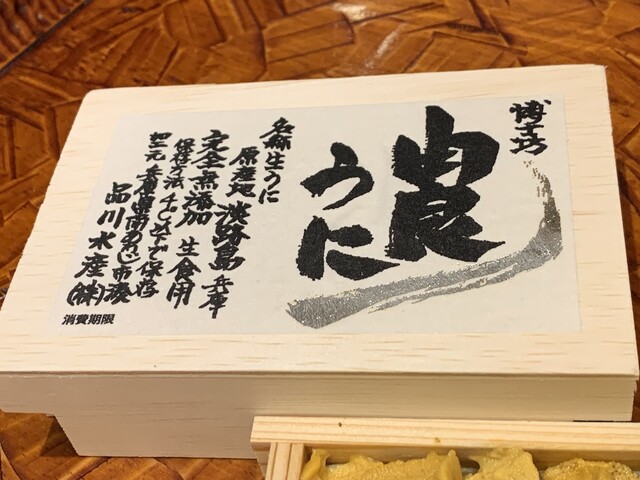 由良
うに
名称生うに
原産地 淡路島 兵庫
完全無添加 生食用
保存方法 4℃以下で保存
加工元 兵庫県南あわじ市湊
品川水産㈱
消費期限